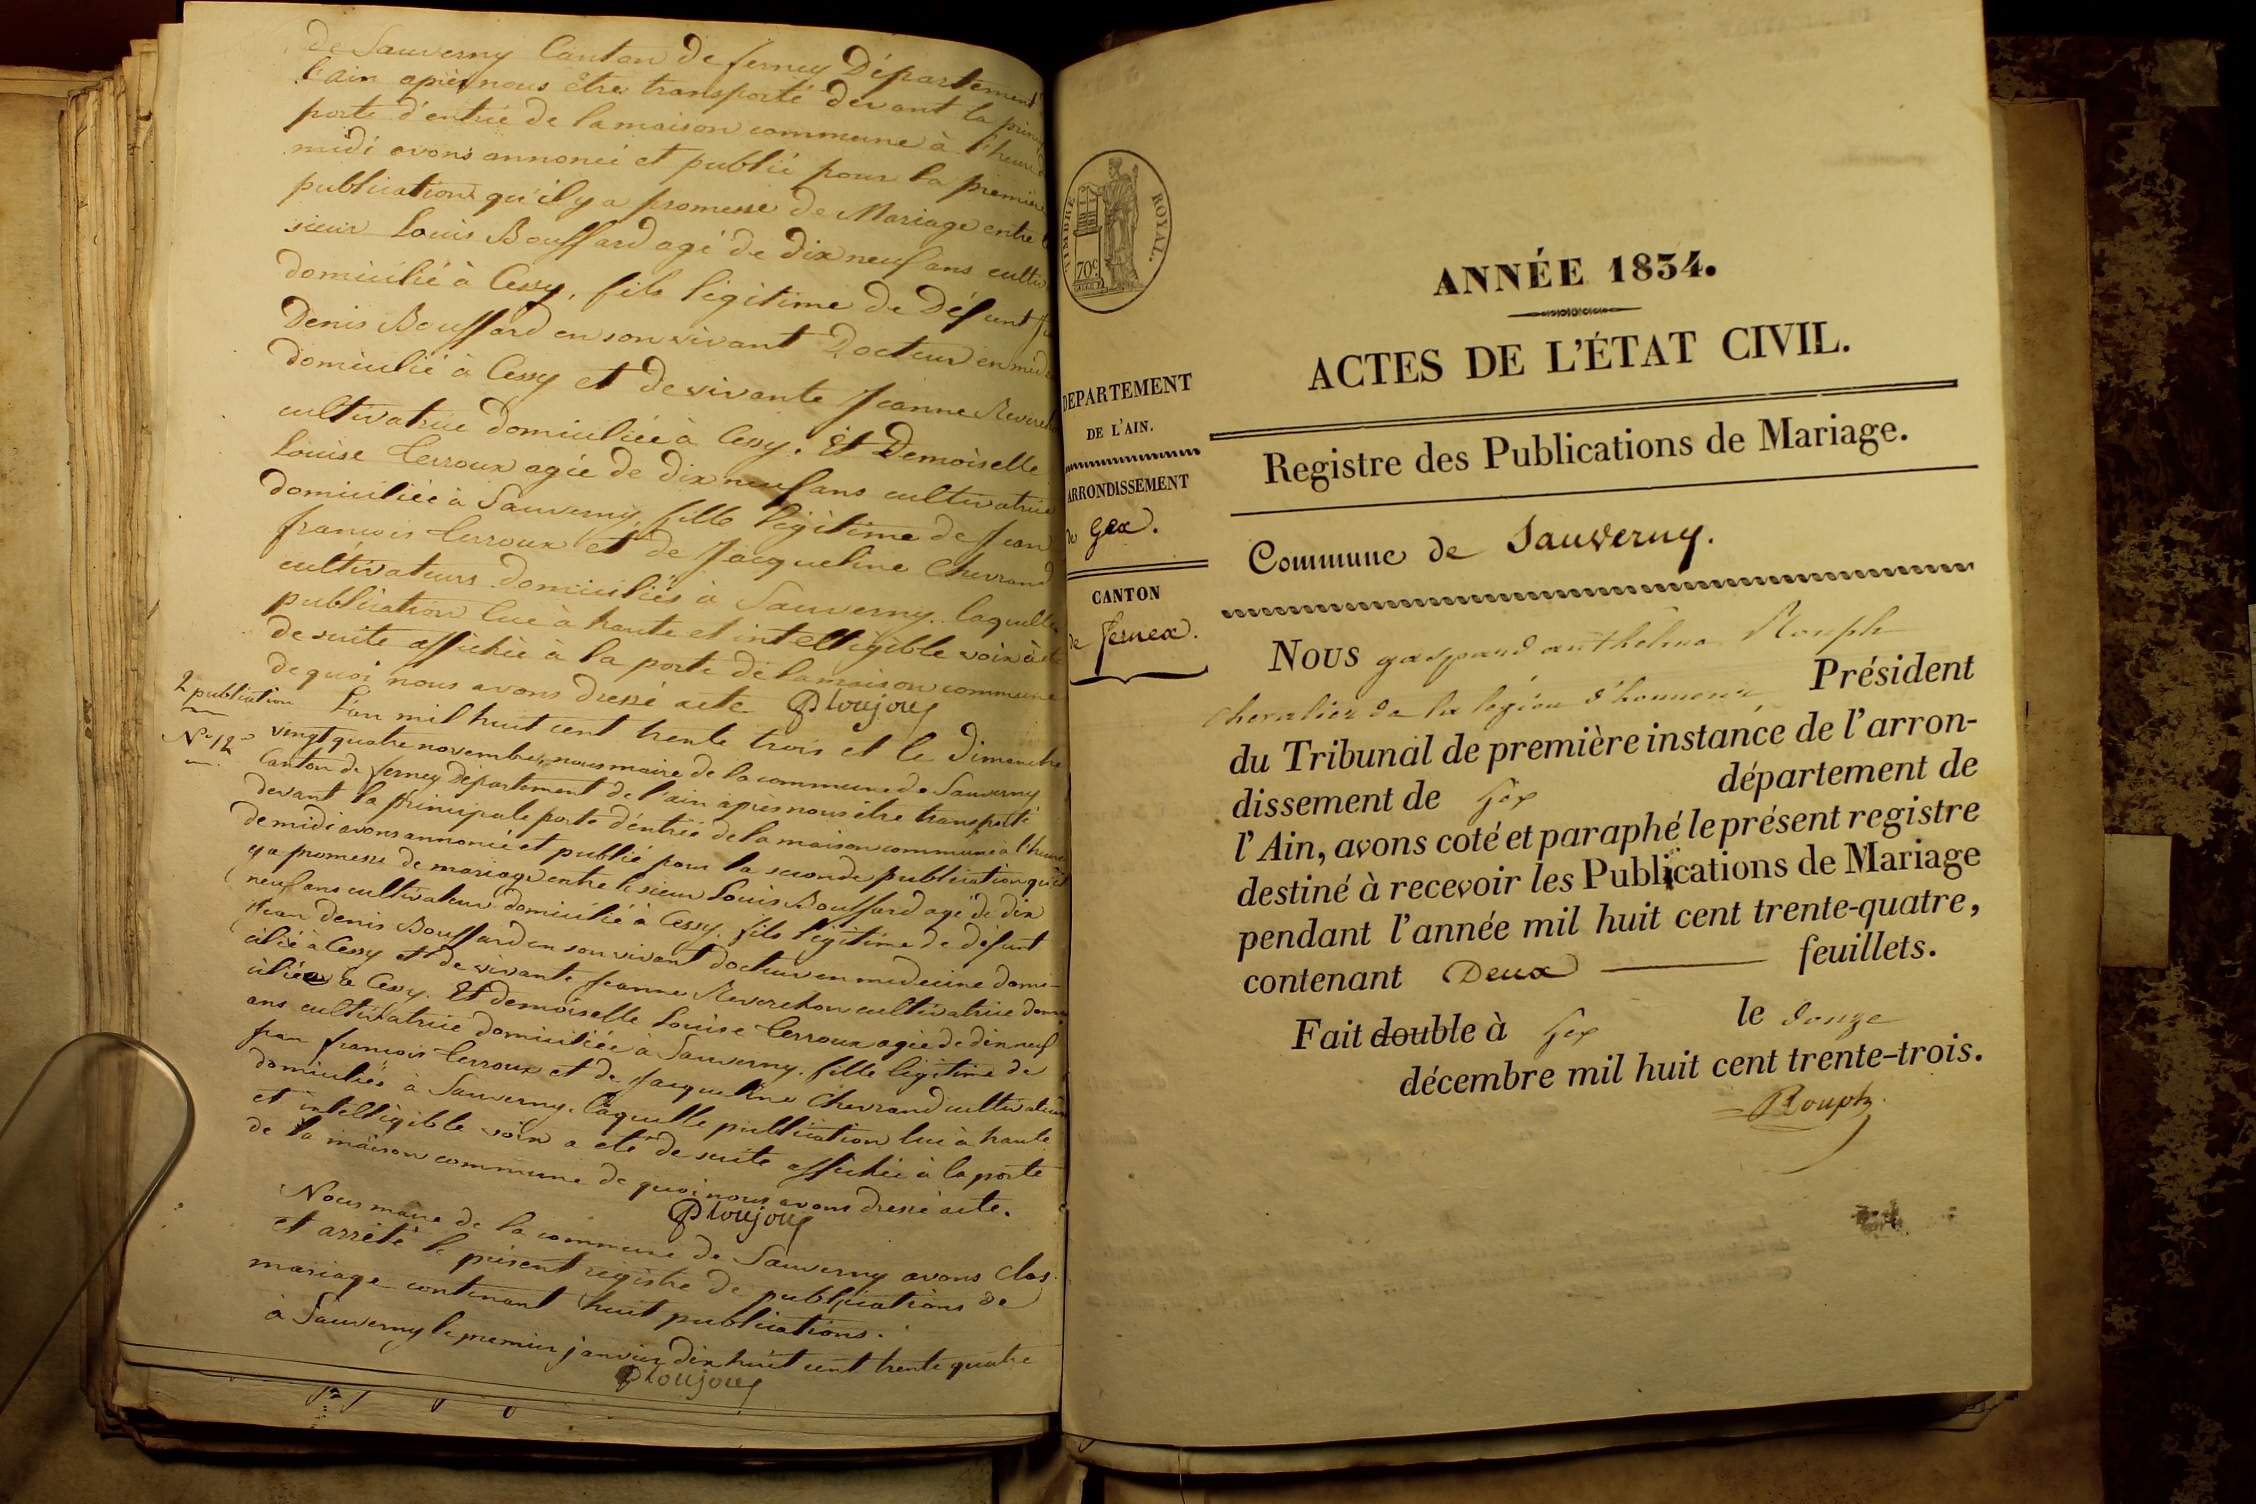 de Sauverny Canton de ferney Département
l'ain après nous être transporté devant la
porte d'entrée de la maison commune à l'heure
midi avons annoncé et publié pour la première
publication qu'il y a promesse de Mariage entre
sieur Louis Bouffard agé de dix neuf ans
domicilié à Cessy, fils légitime de Défunt
Denis Bouffard en son vivant Docteur en
domicilié à Cessy et de vivante Jeanne
cultivatrice domiciliée à Cessy. Et Demoiselle
Louise Terroux agée de dix neuf ans cultivatrice
domiciliée à Sauverny, fille légitime de Jean
françois Terroux et de Jacqueline Chevrand
cultivateurs domiciliés à Sauverny. laquelle
publication lue à haute et intelligible voix à été
de suite affichée à la porte de la maison commune
de quoi nous avons dressé acte Ploujoux
2 publication
N° 12
L'an mil huit cent trente trois et le Dimanche
vingt quatre novembre, nous maire de la commune de Sauverny
Canton de ferney Département de l'ain après nous être transporté
devant la principale porte d'entrée de la maison commune à l'heure
de midi avons annoncé et publié pour la seconde publication qu'il
y a promesse de mariage entre le sieur Louis Bouffard agé de dix
neuf ans cultivateur domicilié à Cessy, fils légitime de défunt
Jean denis Bouffard en son vivant docteur en medecine domi-
cilié à Cessy et de vivante Jeanne Reverchon cultivatrice domi
ciliée à Cessy. Et demoiselle Louise Terroux agée de dix neuf
ans cultivatrice domiciliée à Sauverny, fille légitime de
Jean françois Terroux et de Jacqueline Chevrand cultivateurs
domiciliés à Sauverny. laquelle publication lue à haute
et intelligible voix a été de suite affichée à la porte
de la maison commune de quoi nous avons dressé acte.
Ploujoux
Nous maire de la commune de Sauverny avons clos
et arrêté le présent registre de publications de
mariage contenant huit publications.
à Sauverny le premier janvier dix huit cent trente quatre
Ploujoux
TIMBRE ROYAL.
70c
DEPARTEMENT
DE L'AIN.
ARRONDISSEMENT
de Gex.
CANTON
de fernex.
ANNÉE 1834.
ACTES DE L'ÉTAT CIVIL.
Registre des Publications de Mariage.
Commune de Sauverny.
Nous gaspard anthelme Rouph
chevalier de la légion d'honneur Président
du Tribunal de première instance de l'arron-
dissement de Gex département de
l'Ain, avons coté et paraphé le présent registre
destiné à recevoir les Publications de Mariage
pendant l'année mil huit cent trente-quatre,
contenant Deux feuillets.
Fait double à Gex le douze
décembre mil huit cent trente-trois.
Rouph